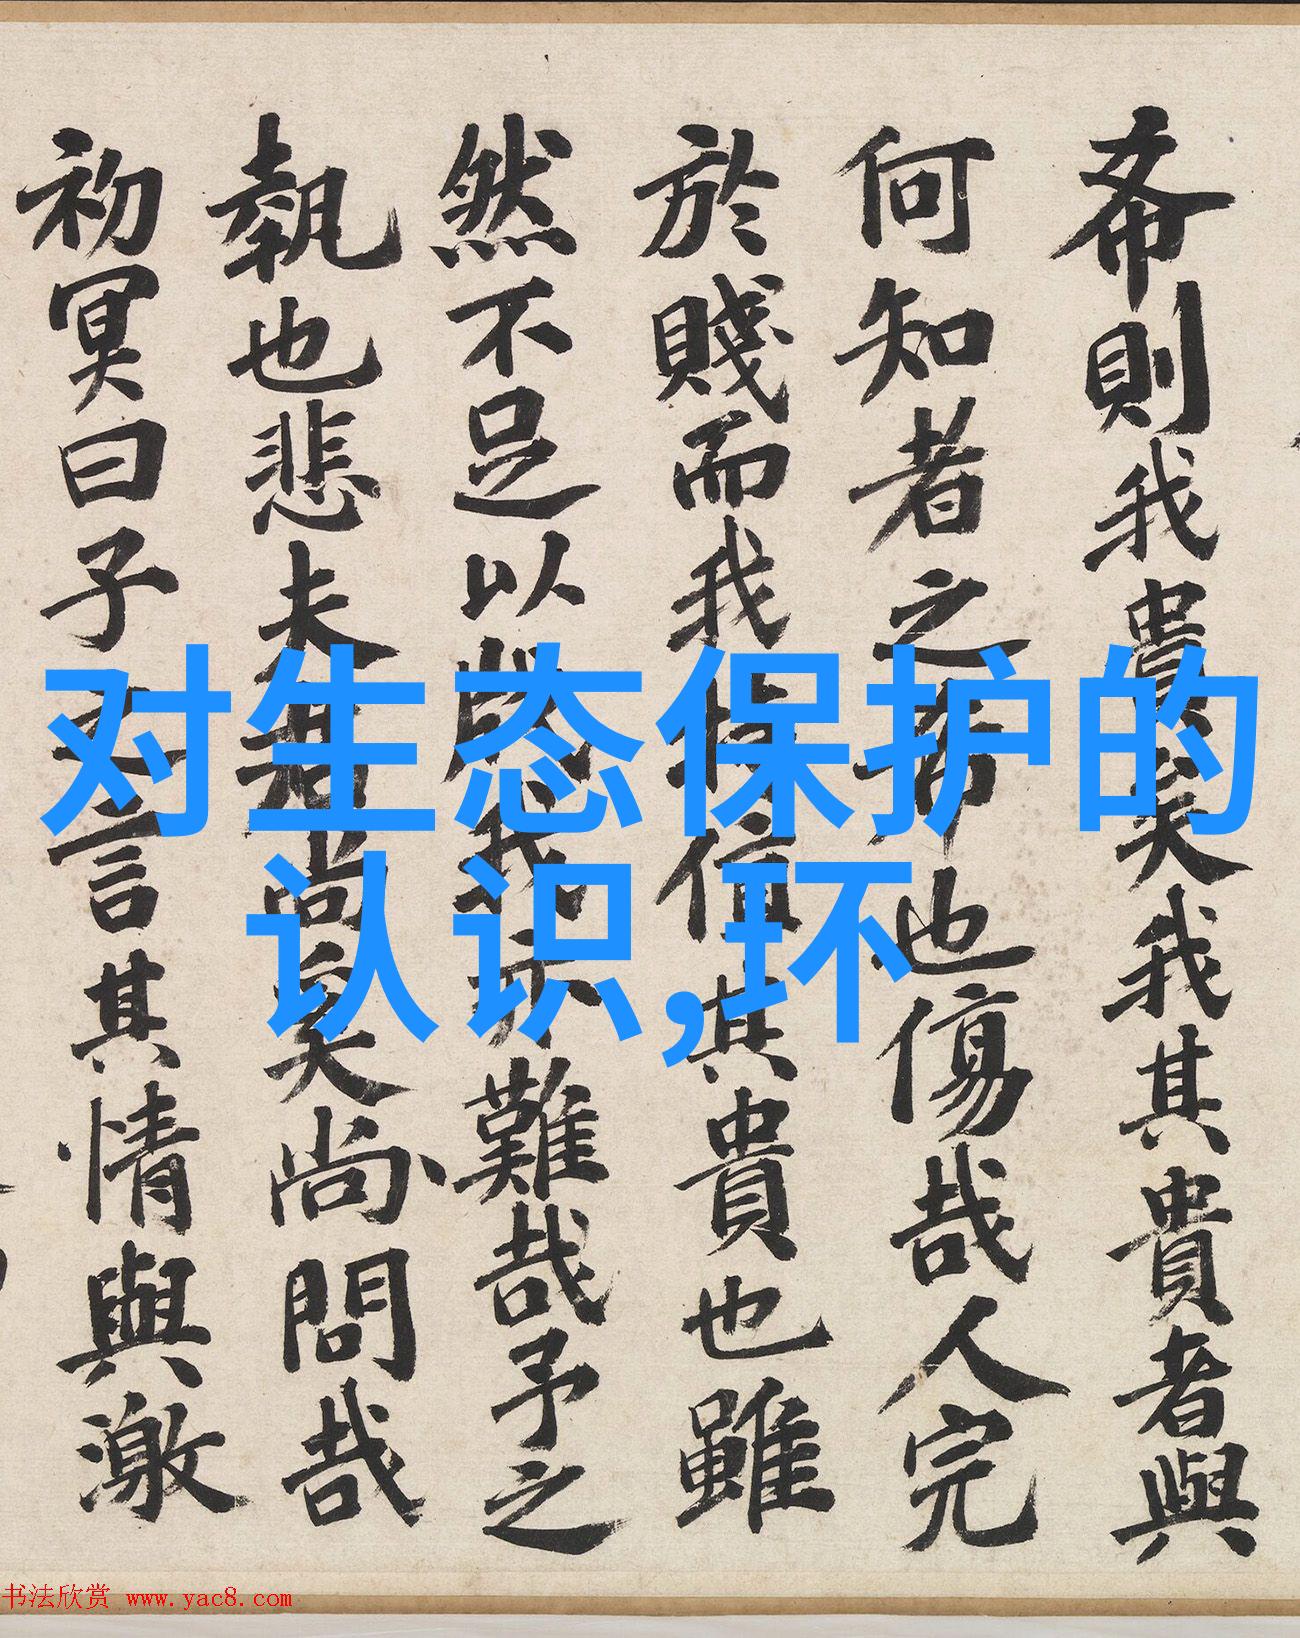 希則我貴矣我其貴者與
何知者之希也傷哉人完
於賤而我其貴也雖
然不足以我難哉予之
執也悲夫尚矣尚問哉
初冥曰子之言其情與激
对生态保护的
认识,环
书法欣赏 www.yac8.com